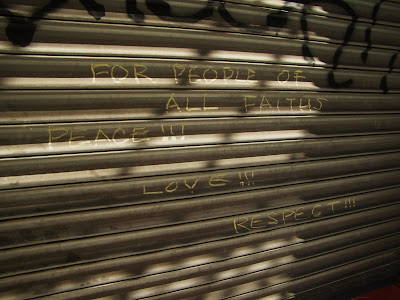 FOR PEOPLE OF
ALL FAITHS
PEACE!!!
LOVE!!!
RESPECT!!!